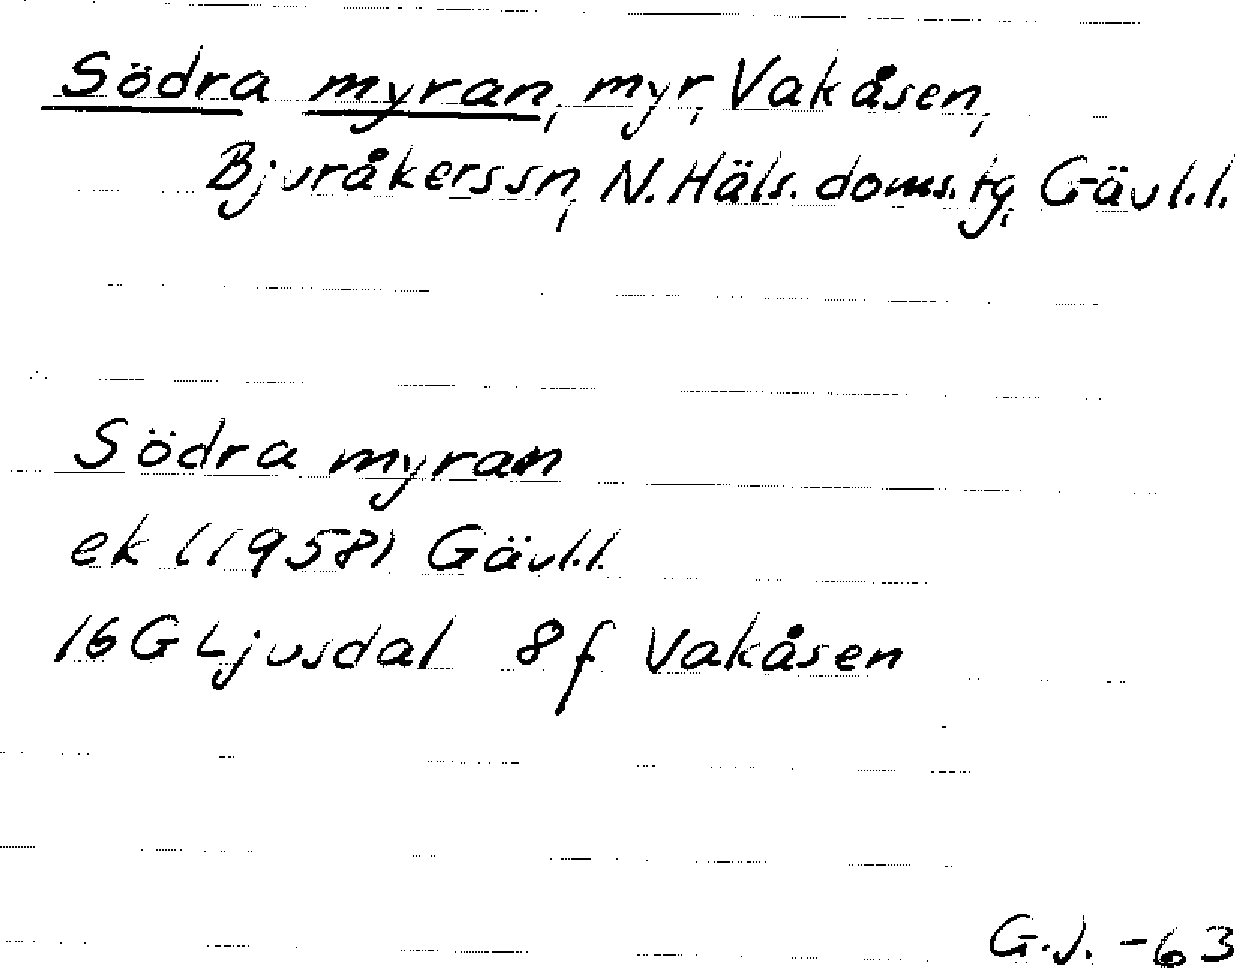 Södra myran, myr, Vakåsen,
Bjuråkerssn, N. Häls. doms. tg, Gävl.l.
Södra myran
ek (1958) Gävl.l.
16G Ljusdal 8f Vakåsen
G.J. -63